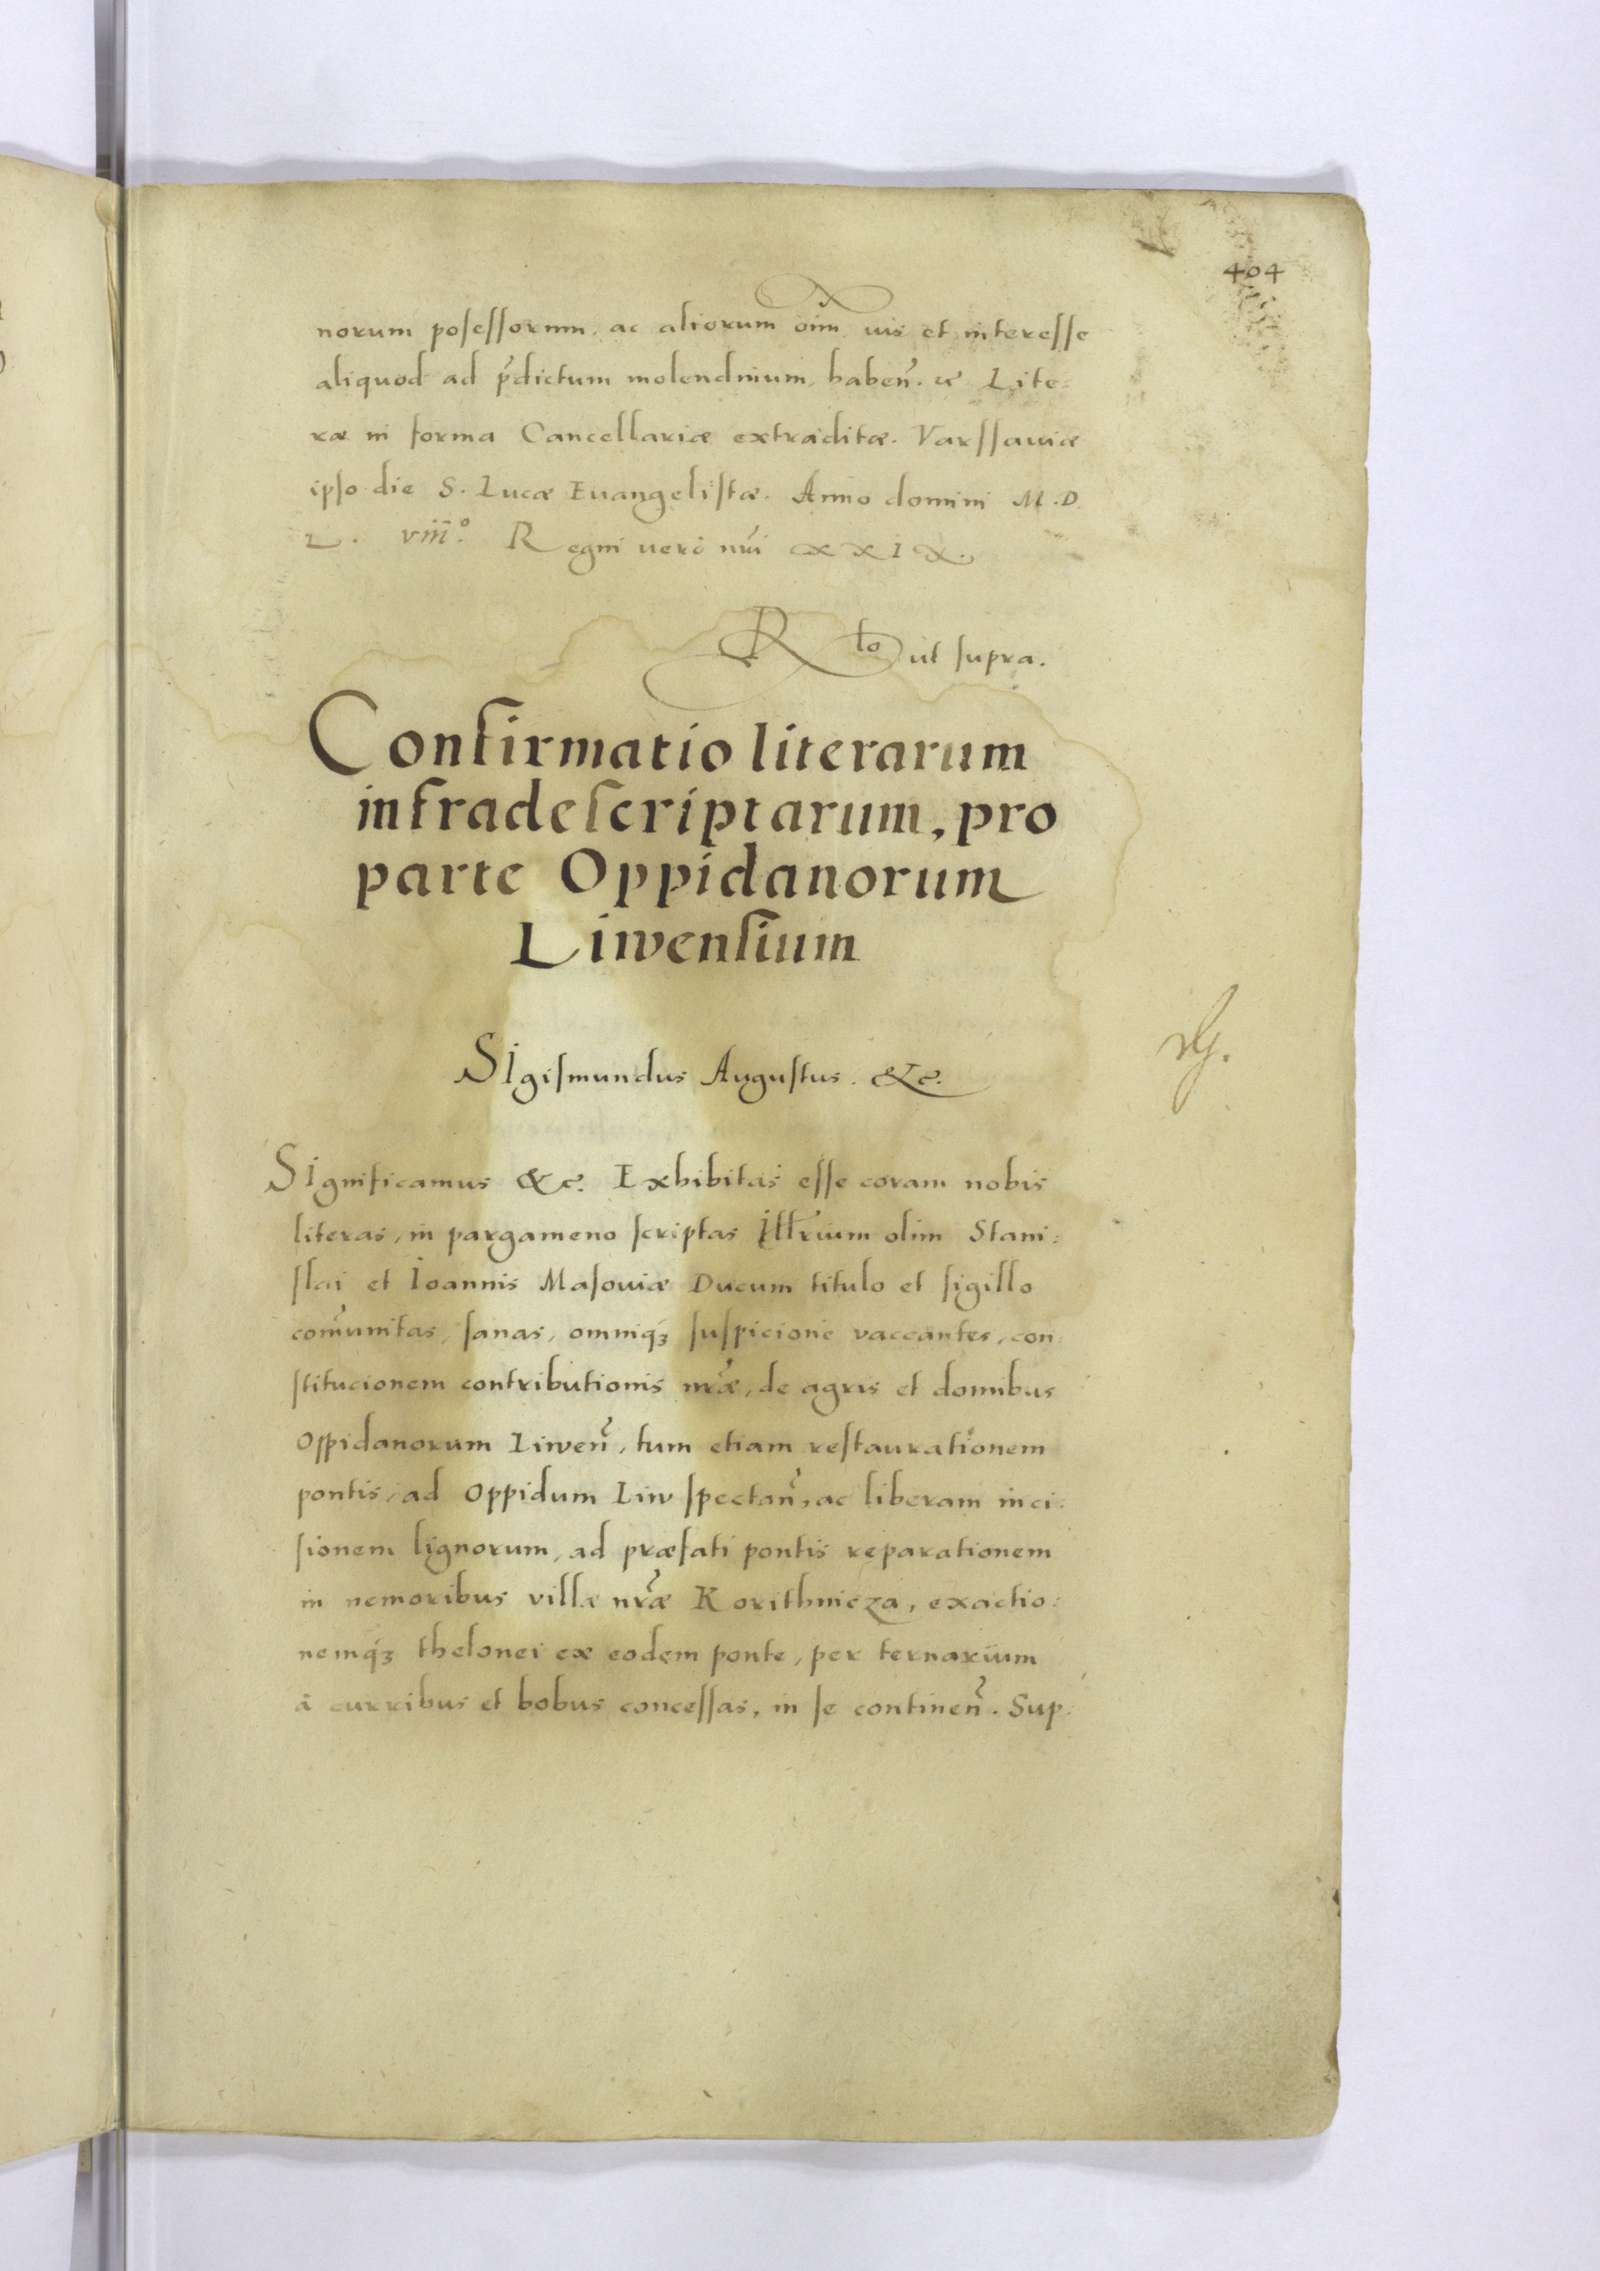 404
norum posessorum, ac aliorum oīm ius et interesse
aliquod ad p̄dictum molendinum, haben̄. &c Lite:
ræ in forma Cancellariæ extraditæ. Varssauiæ
ipso die S. Lucæ Euangelistæ. Anno domini M.D.
L. viii°. Regni vero nr̄i XXIX.
R to ut supra.
Confirmatio literarum
infradescriptarum, pro
parte Oppidanorum
Liwensium
SIgismundus Augustus. &c.
SIgnificamus &c. Exhibitas esse coram nobis
literas, in pargameno scriptas Illr̄ium olim Stani:
slai et Ioannis Masouiæ Ducum titulo et sigillo
com̄unitas, sanas, omniq́ꝫ suspicione vaccantes, con:
stitucionem contributionis nr̄æ, de agris et domibus
Oppidanorum Liwen̄, tum etiam restaurationem
pontis, ad Oppidum Liw spectan̄, ac liberam inci:
sionem lignorum, ad præfati pontis reparationem
in nemoribus villæ nr̄æ Korithnicza, exactio:
nemq́ꝫ thelonei ex eodem ponte, per ternarium
à curribus et bobus concessas, in se continen̄. Sup: